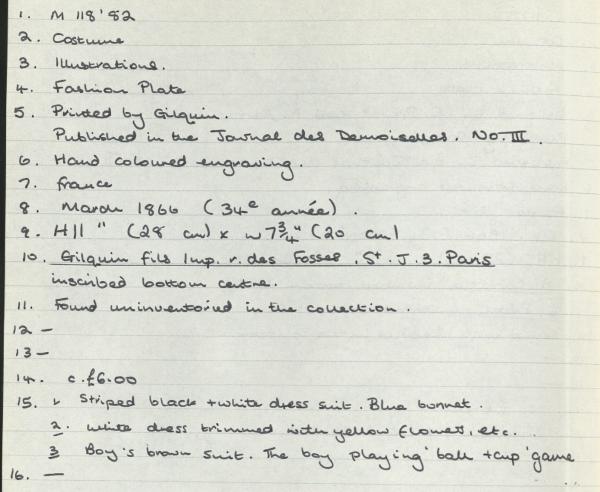 1. M 118'82
2. Costume
3. Illustrations.
4. Fashion Plate
5. Printed by Gilquin.
Published in the Journal des Demoiselles. No. III.
6. Hand coloured engraving.
7. France
8. March 1866 (34e année).
9. H 11" (28 cm) x W 7 3/4" (20 cm)
10. Gilquin fils Imp. r. des Fosses. St. J. 3. Paris
inscribed bottom centre.
11. Found uninventoried in the collection.
12 —
13 —
14. c. £6.00
15. 1. Striped black + white dress suit. Blue bonnet.
2. White dress trimmed with yellow flowers, etc.
3 Boy's brown suit. The boy playing 'ball + cup' game
16. —